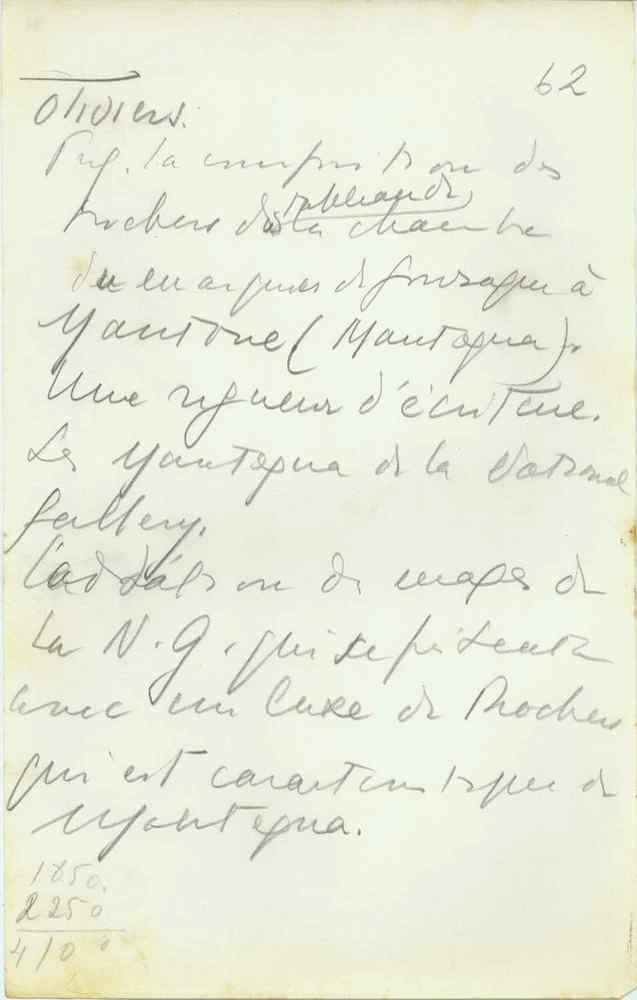 62
oliviers.
Pug. la composition des
rochers des tableaux de
la chambre
du marquis de Gonzague à
Mantoue (Mantegna).
Une rigueur d'écriture.
Les Mantegna de la National
Gallery.
L'adoration des mages de
la N.G. qui se présente
avec un luxe de Rochers
qui est caractéristique de
Mantegna.
1850.
2250
4100